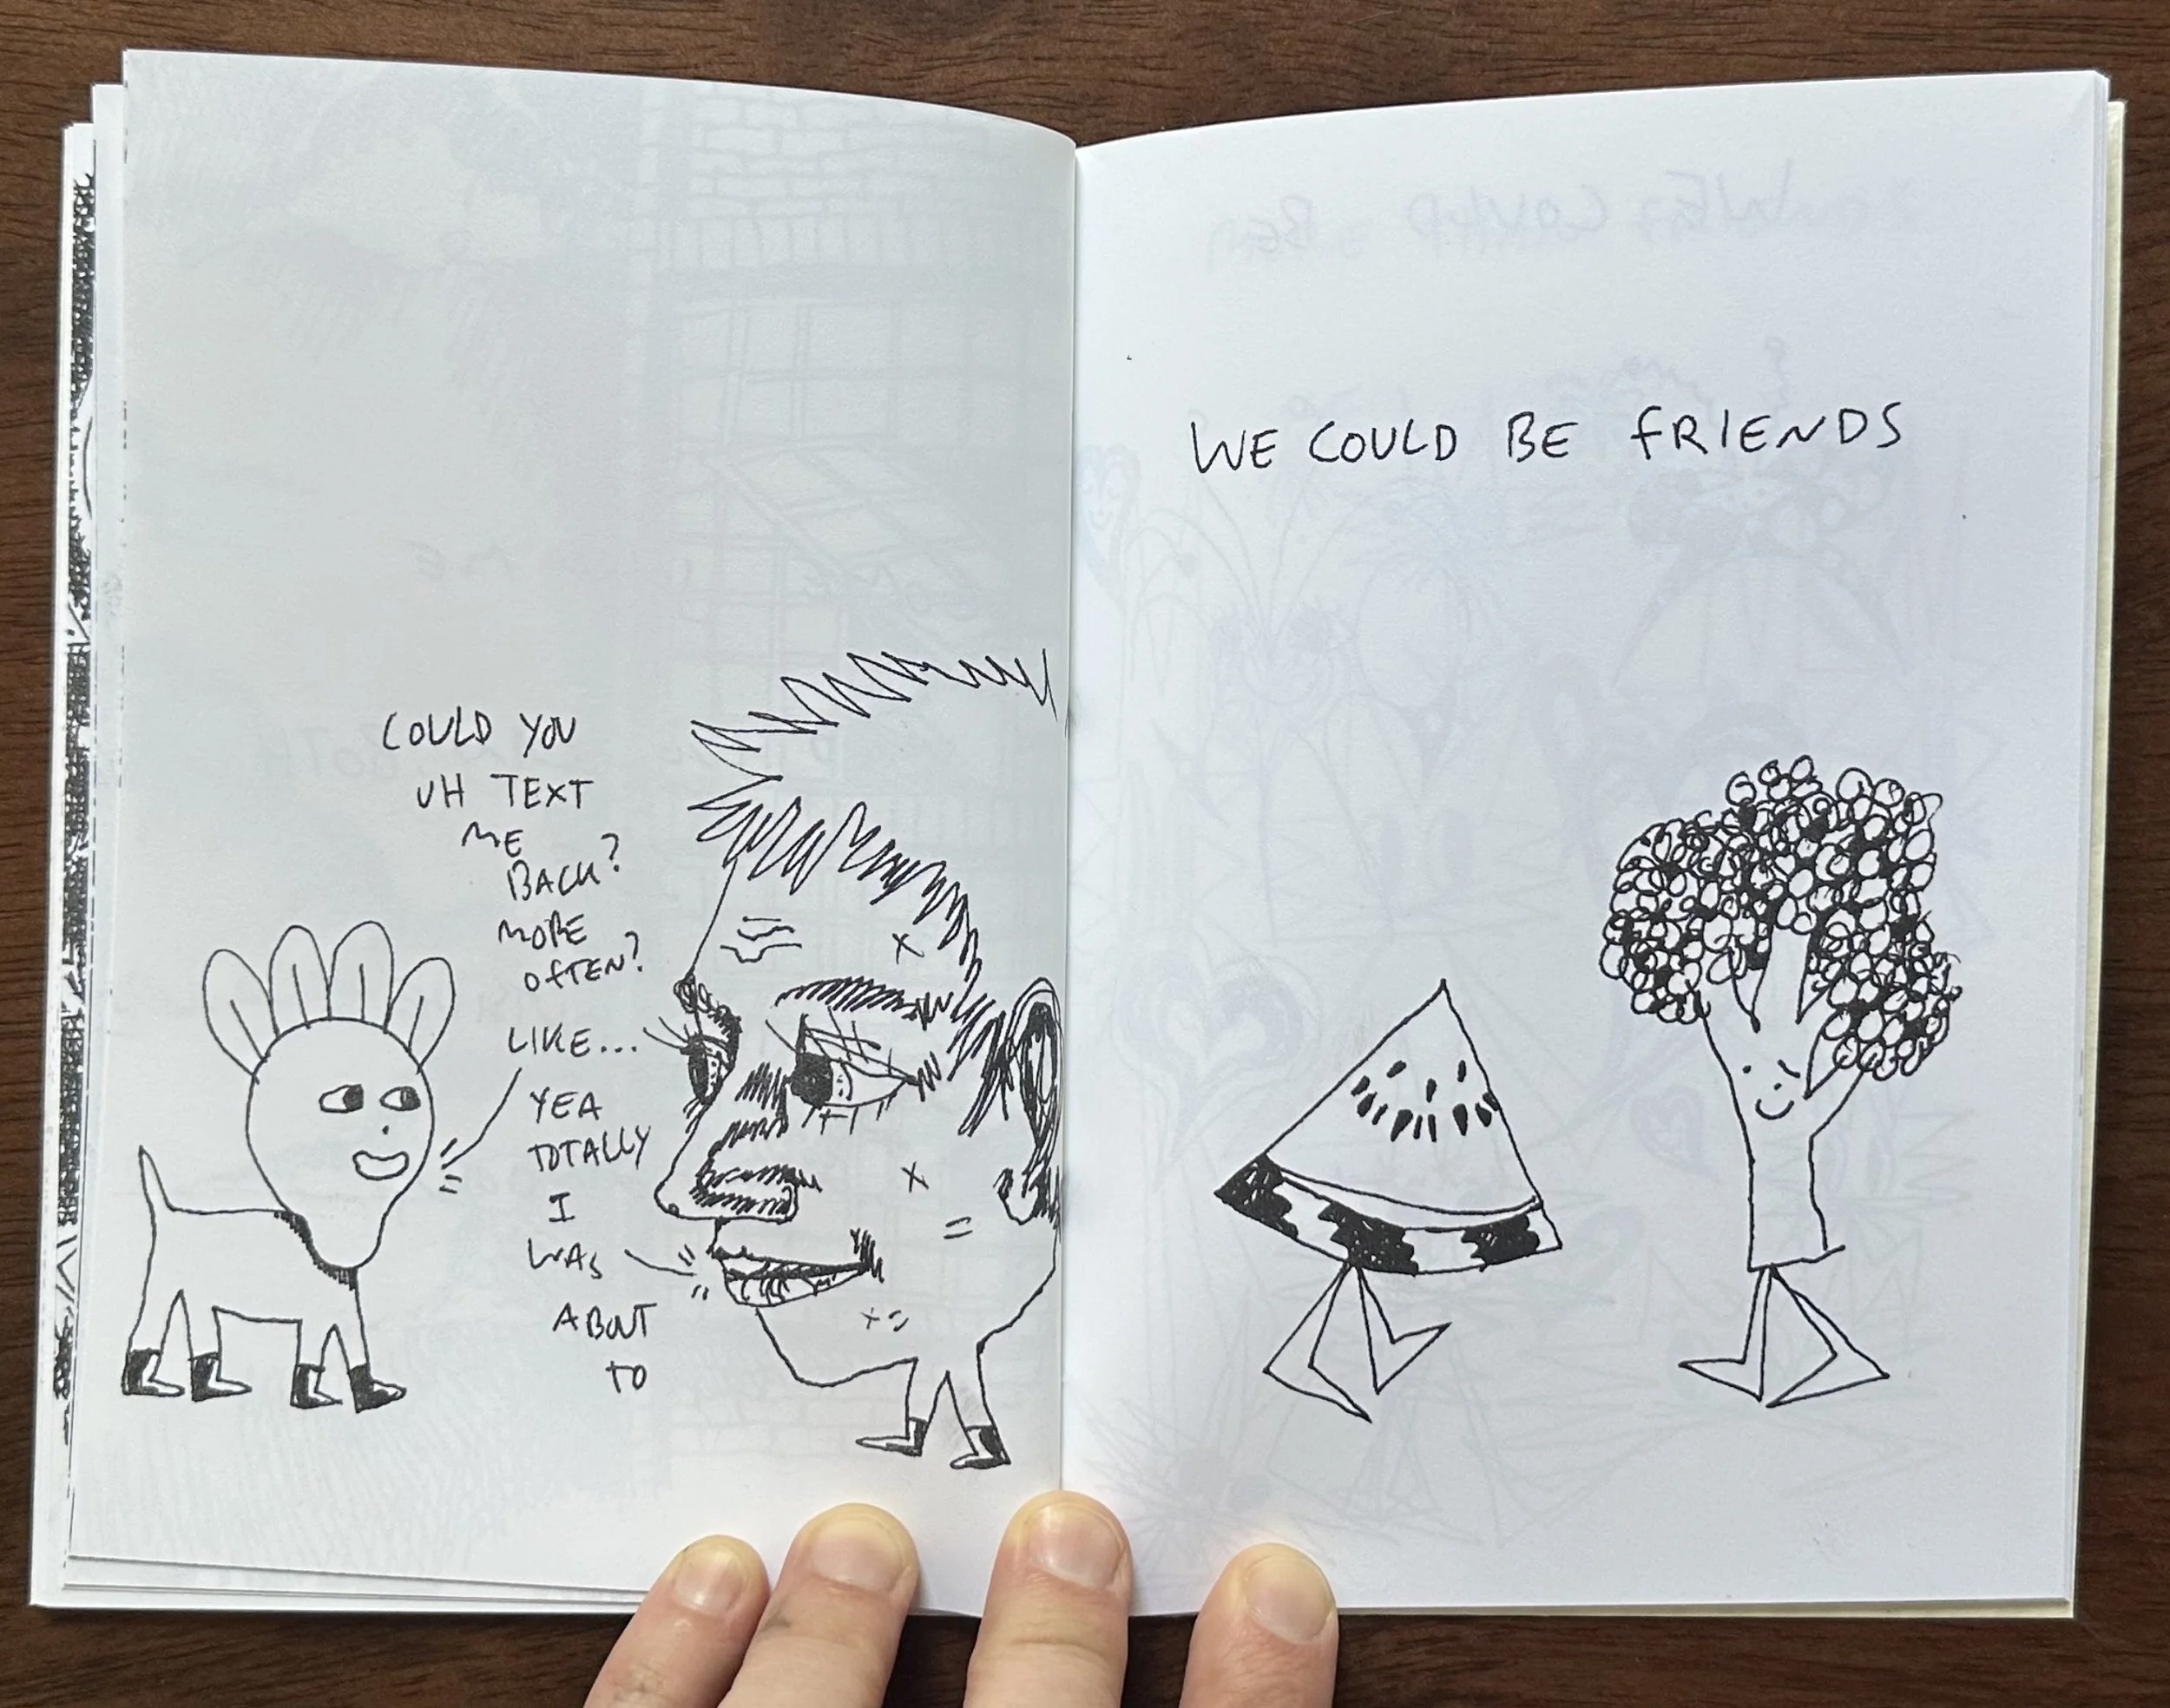 COULD YOU
UH TEXT
ME
BACK?
MORE
OFTEN?
LIKE...
YEA
TOTALLY
I
WAS
ABOUT
TO
WE COULD BE FRIENDS